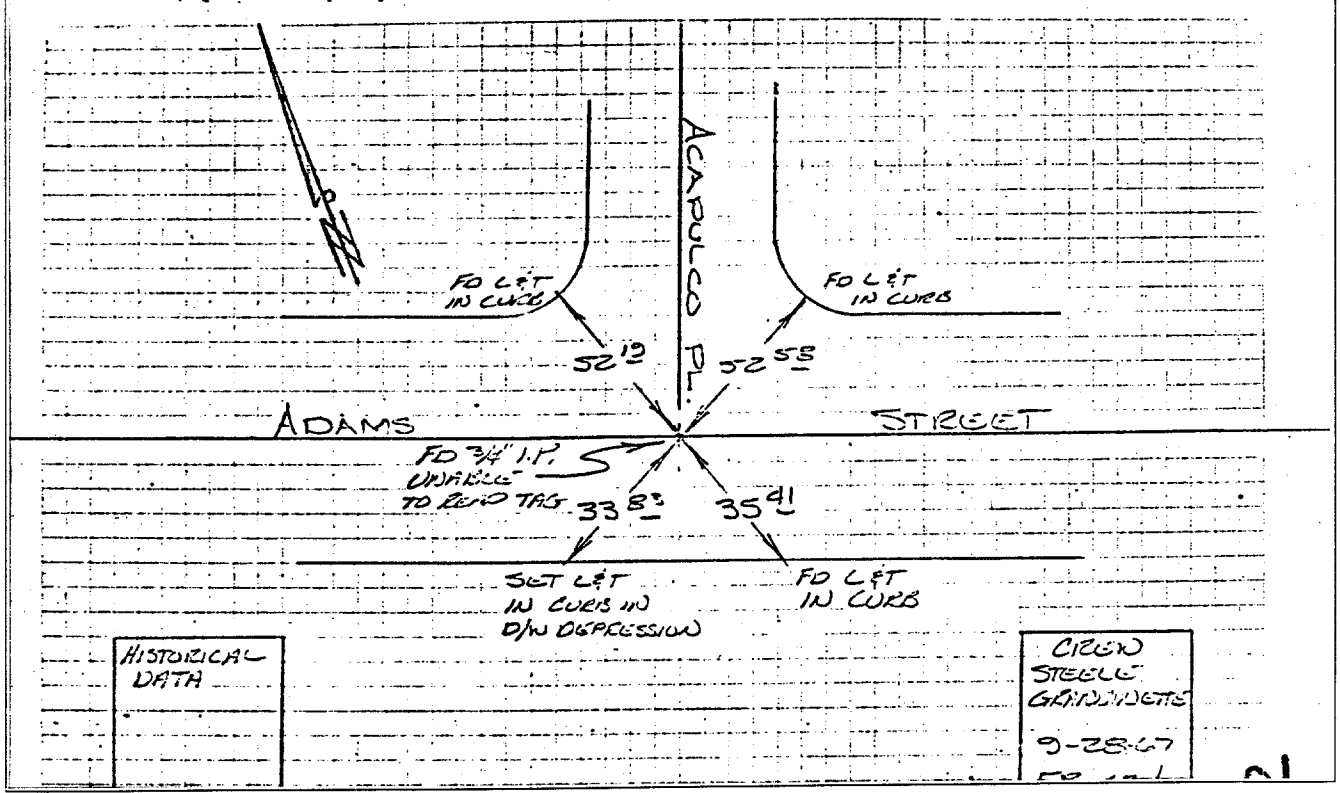 ACAPULCO PL.
FD L&T
IN CURB
FD L&T
IN CURB
52 19
52 55
ADAMS STREET
FD 3/4" I.P.
UNABLE
TO READ TAG
33 83
35 41
SET L&T
IN CURB IN
D/W DEPRESSION
FD L&T
IN CURB
HISTORICAL
DATA
CREW
STEELE
9-28-67